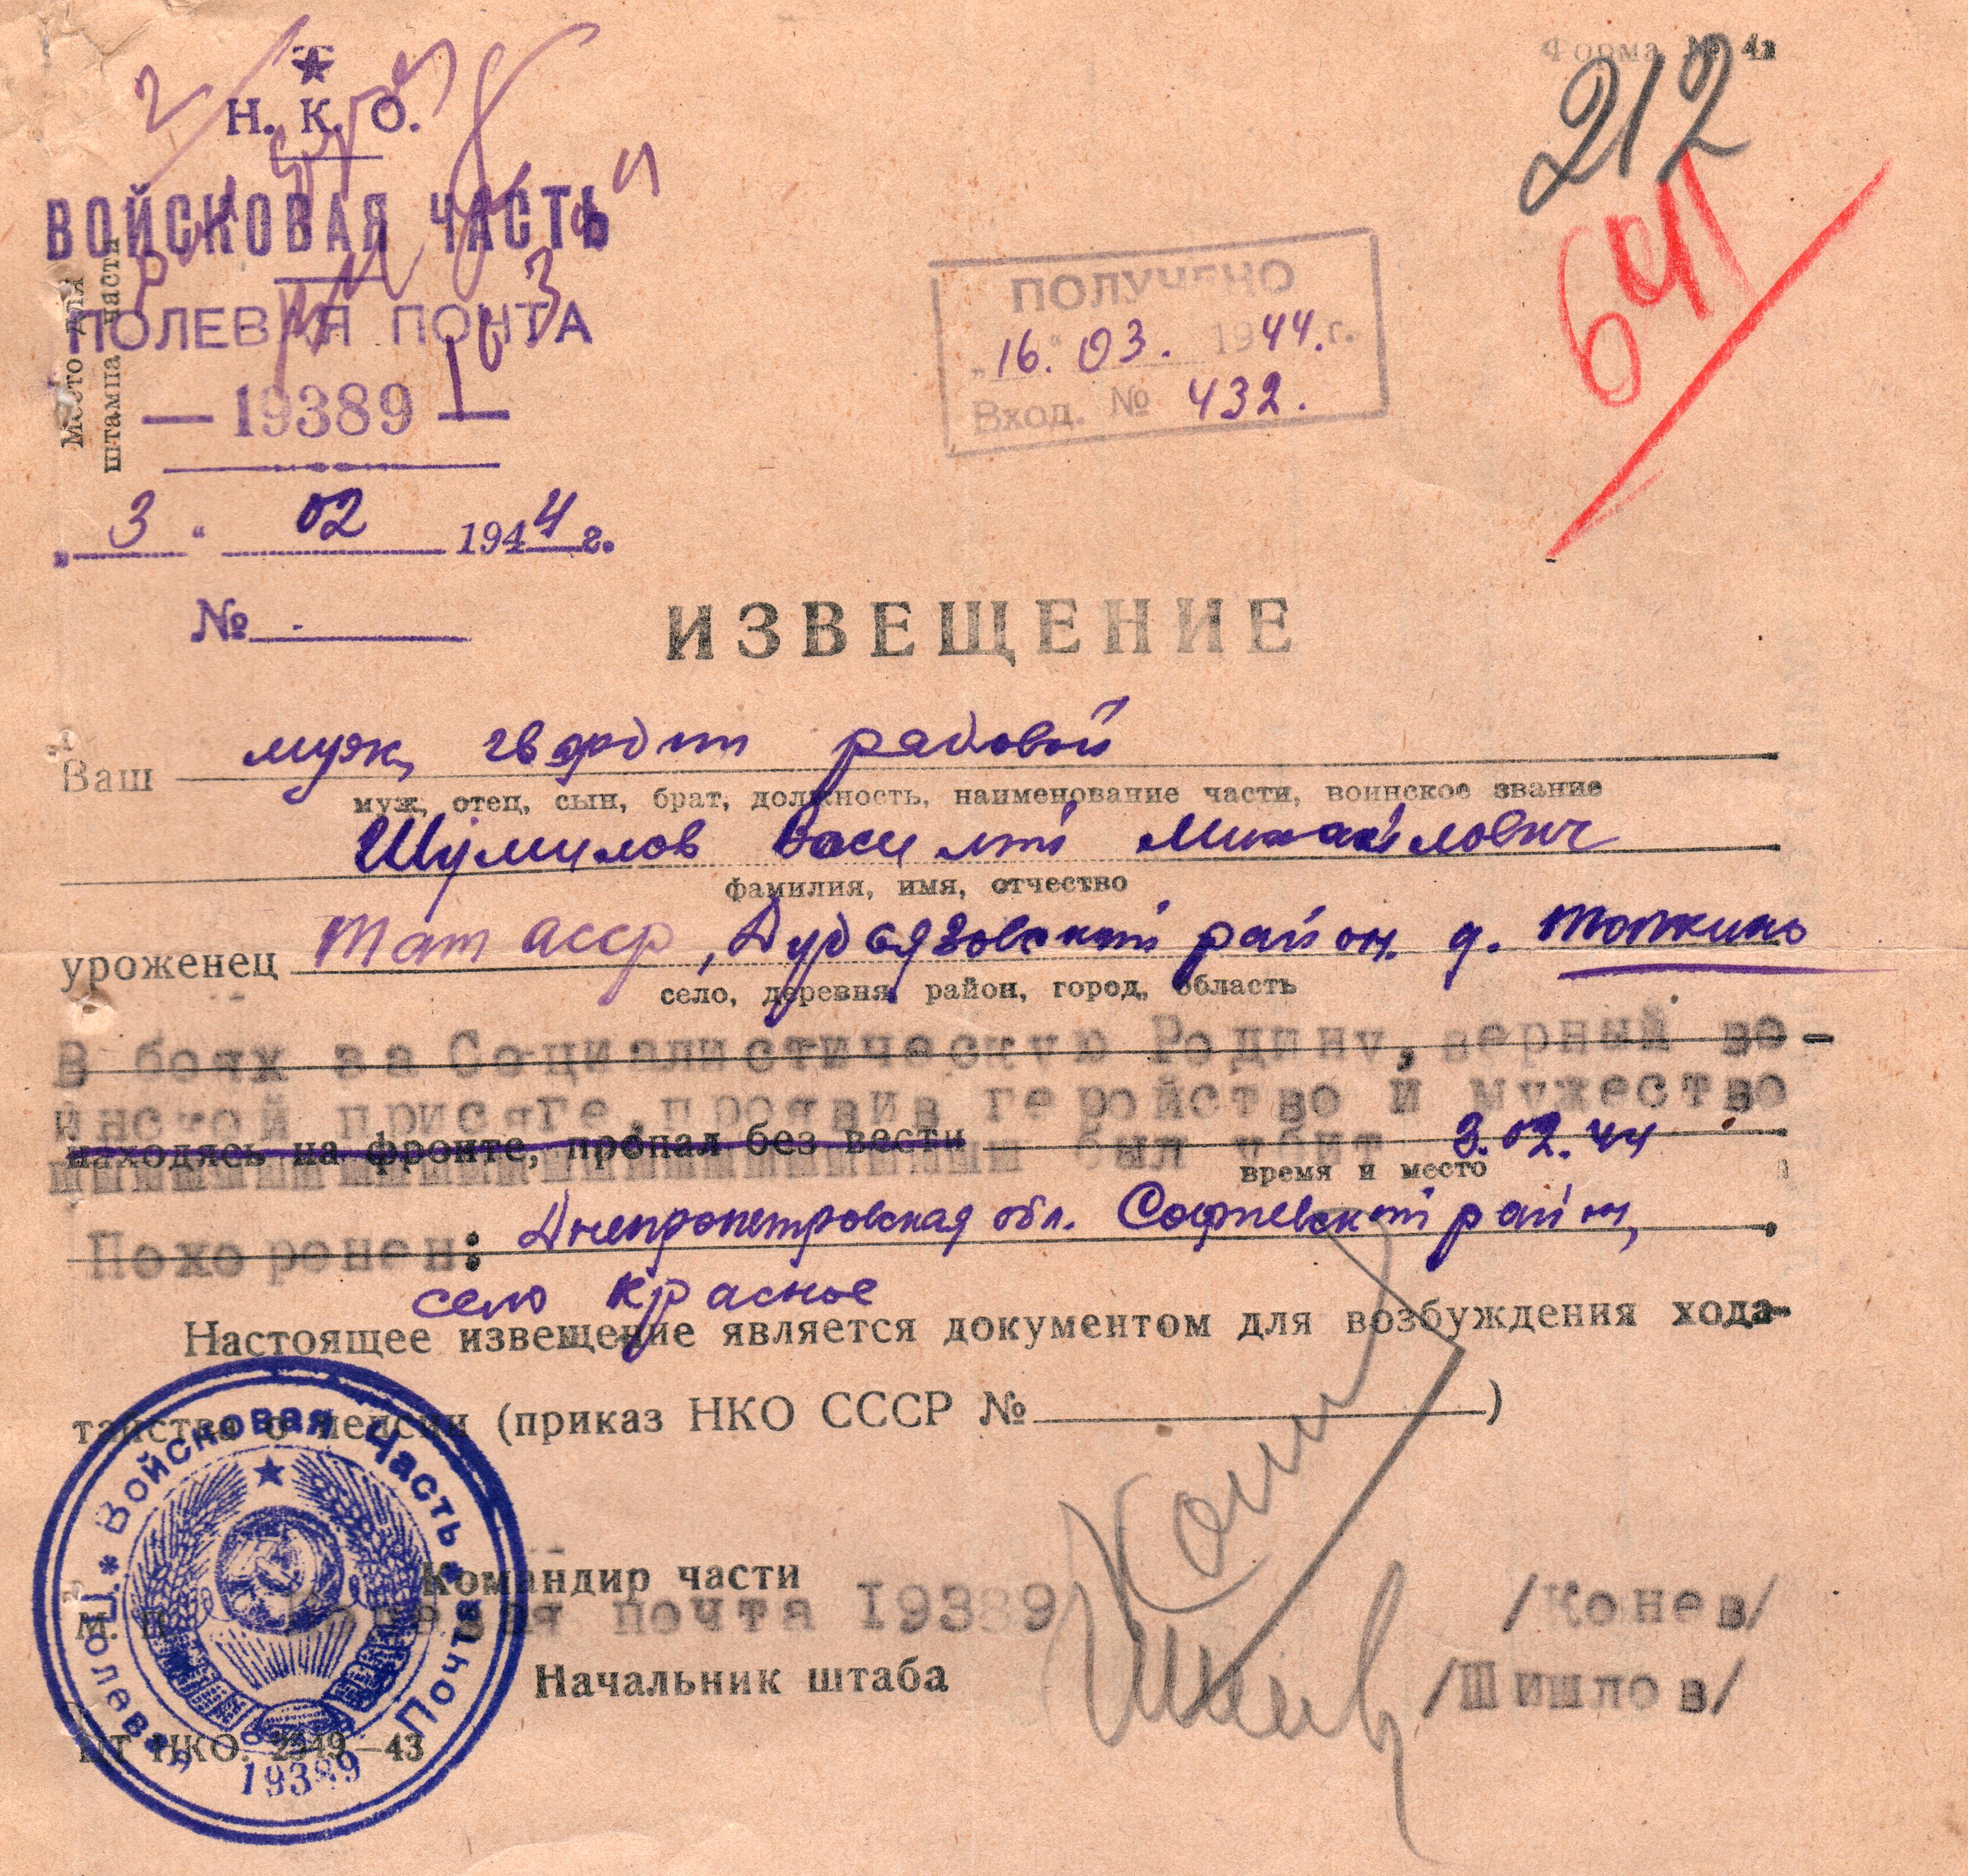 Форма № 4а
212
641
Н. К. О.
ВОЙСКОВАЯ ЧАСТЬ
ПОЛЕВАЯ ПОЧТА
— 19389 —
Место для
штампа части
ПОЛУЧЕНО
„16." 03. 1944. г.
Вход. № 432.
„3" 02 1944 г.
№
ИЗВЕЩЕНИЕ
Ваш муж, гвардии рядовой
муж, отец, сын, брат, должность, наименование части, воинское звание
Шумилов Василий Михайлович
фамилия, имя, отчество
уроженец Тат АССР, Дубъязовский район. д.
село, деревня, район, город, область
В боях за Социалистическую Родину, верный во-
инской присяге, проявив геройство и мужество
находясь на фронте, пропал без вести был убит 3.02.44
время и место
Похоронен: Днепропетровская обл. Софиевский район,
село Красное
Настоящее извещение является документом для возбуждения хода-
тайства о пенсии (приказ НКО СССР № )
Войсковая Часть * Полевая Почта *
19389
Командир части
М. П. Полевая почта 19389 /Конев/
Начальник штаба /Шишлов/
НКО. 2349—43